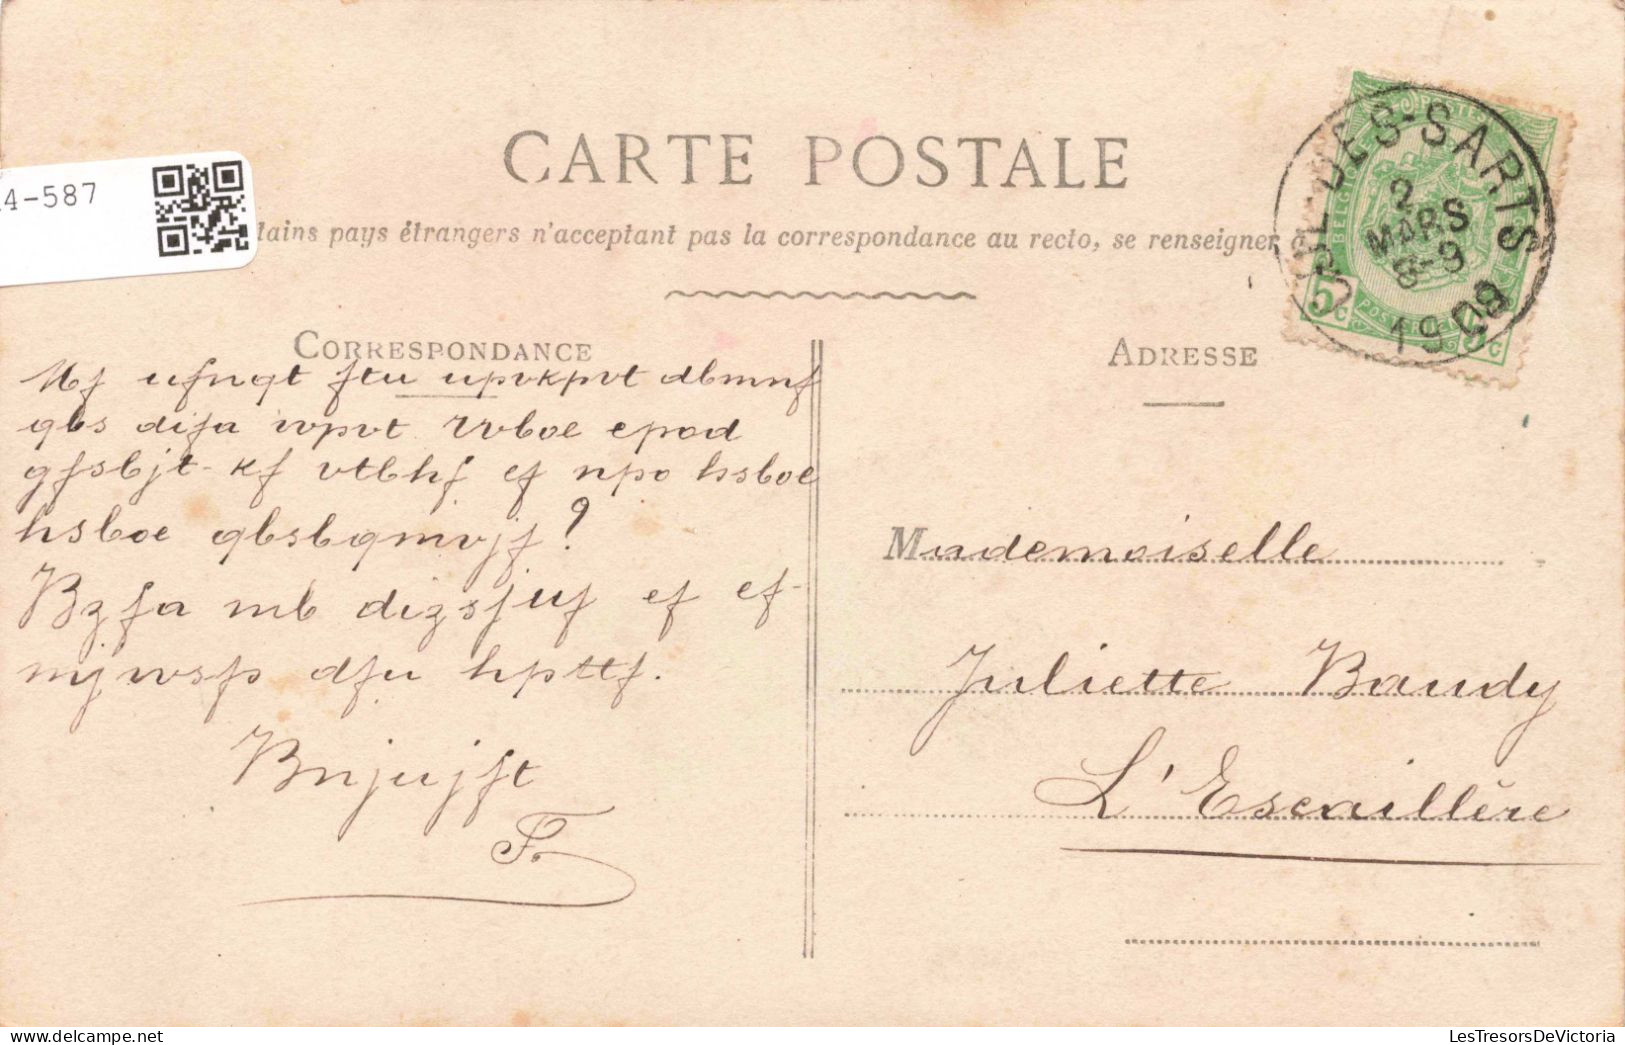 CARTE POSTALE
4-587
tains pays étrangers n'acceptant pas la correspondance au recto, se renseigner
CORRESPONDANCE
Mf ufnqt ftu upvkpvt dbmnf
qbs difa wpvt. Rvboe epod
gfsbjt-kf vtbhf ef npo hsboe
hsboe qbsbqmvjf?
Bzfa mb dizsjuf ef ef-
mjwsfs dfu hpttf.
Bnjujft
F.
ADRESSE
DES-SARTS
2
MARS
8-9
1909
BELGIQUE
5c
5c
Mademoiselle
Juliette Baudy
L'Escaillère
LesTresorsDeVictoria
delcampe.net